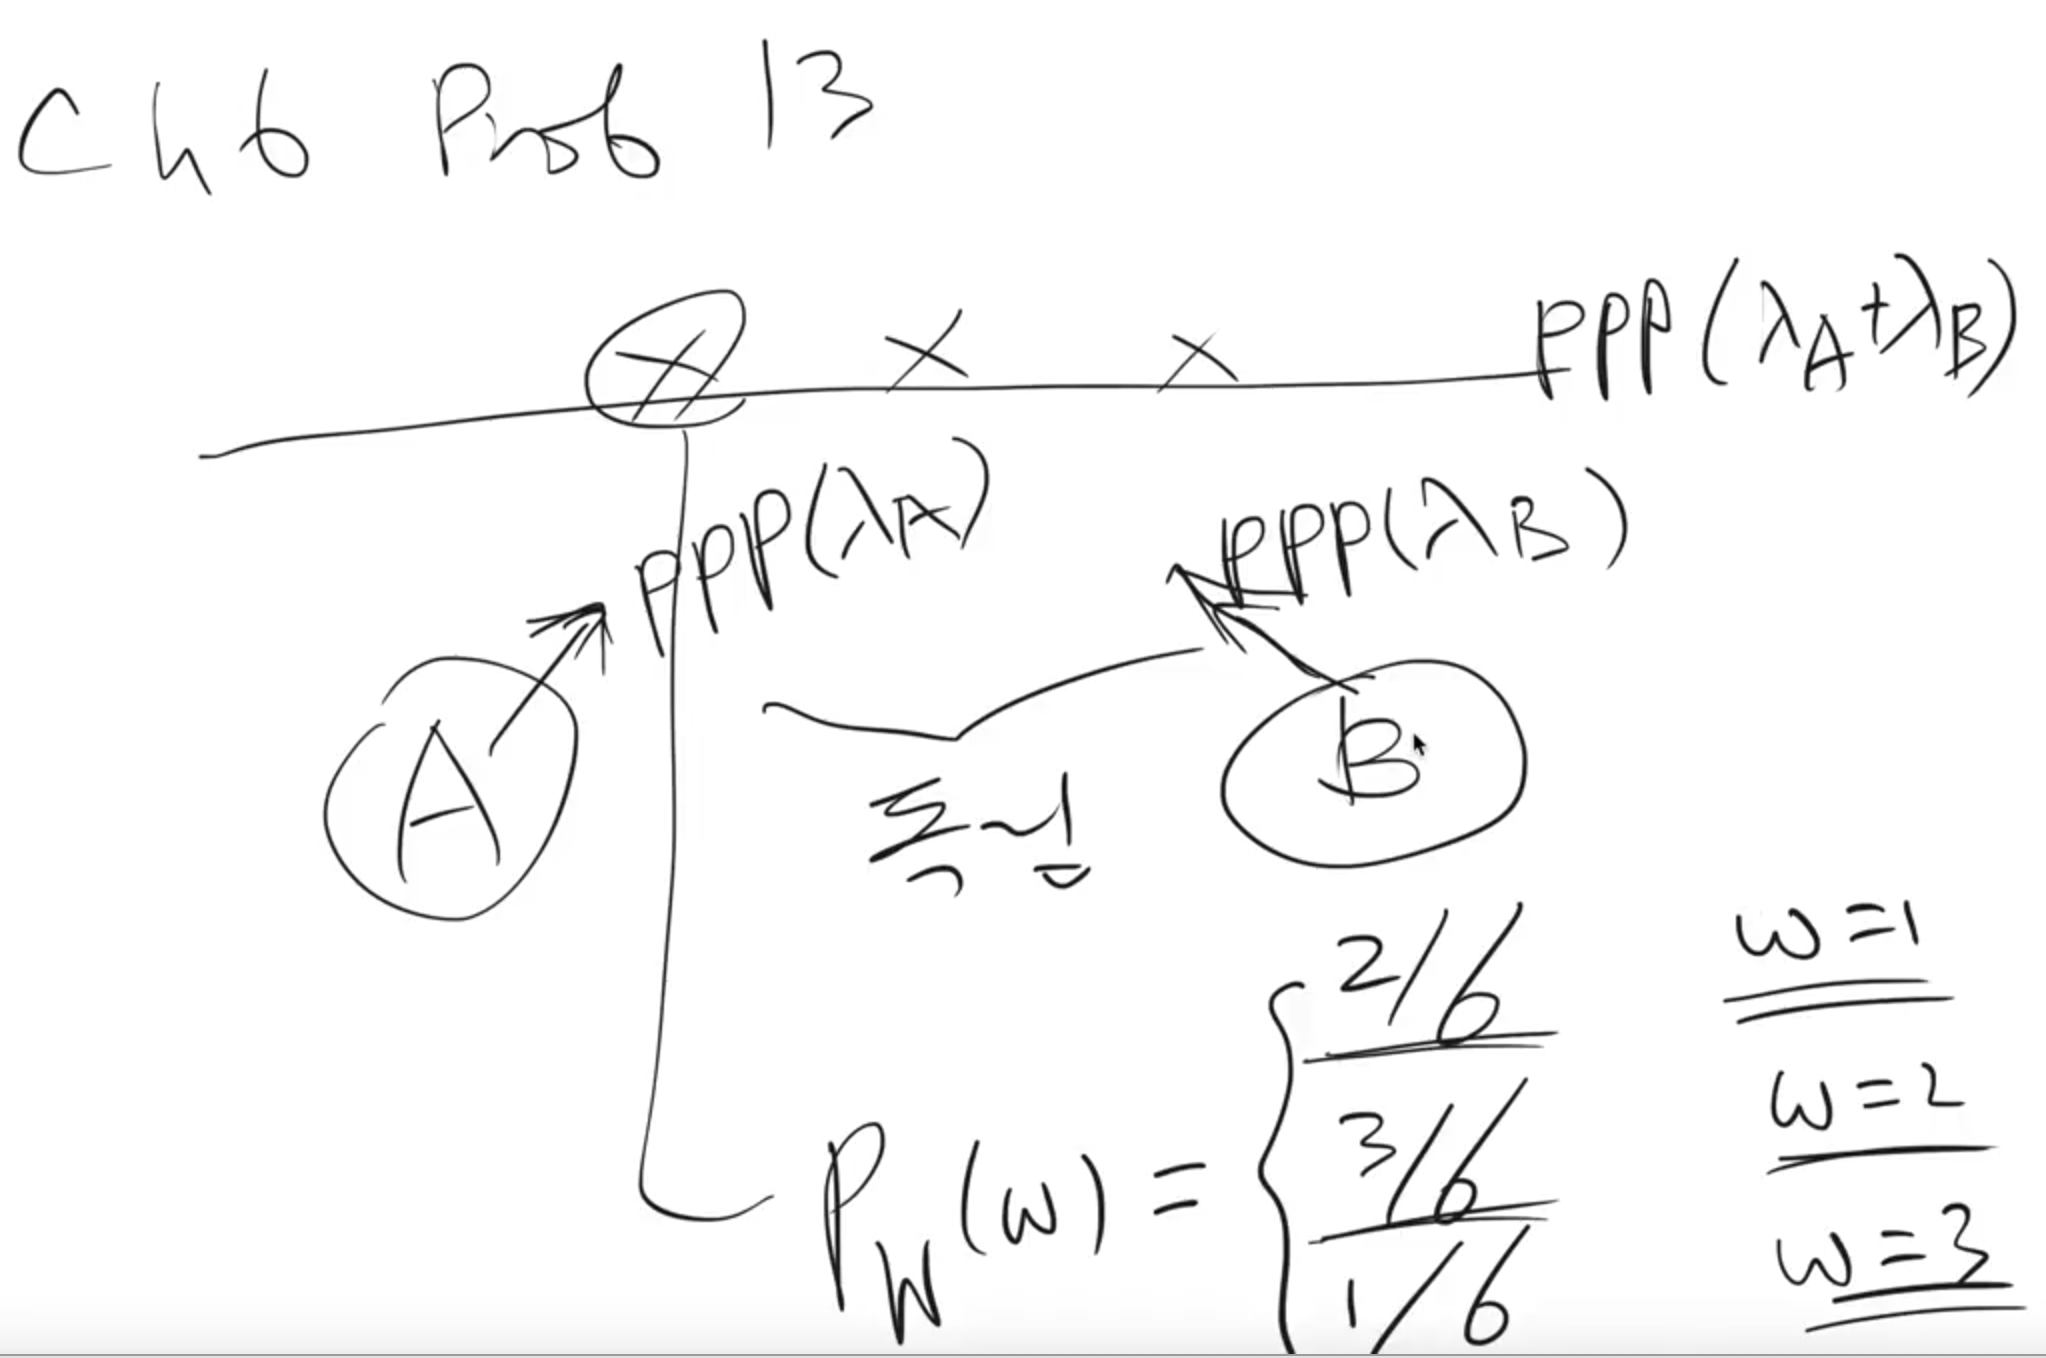 Ch 6 Prob 13
PPP(λA+λB)
PPP(λA) PPP(λB)
A 독립 B
PW(w) = { 2/6 w=1
3/6 w=2
1/6 w=3